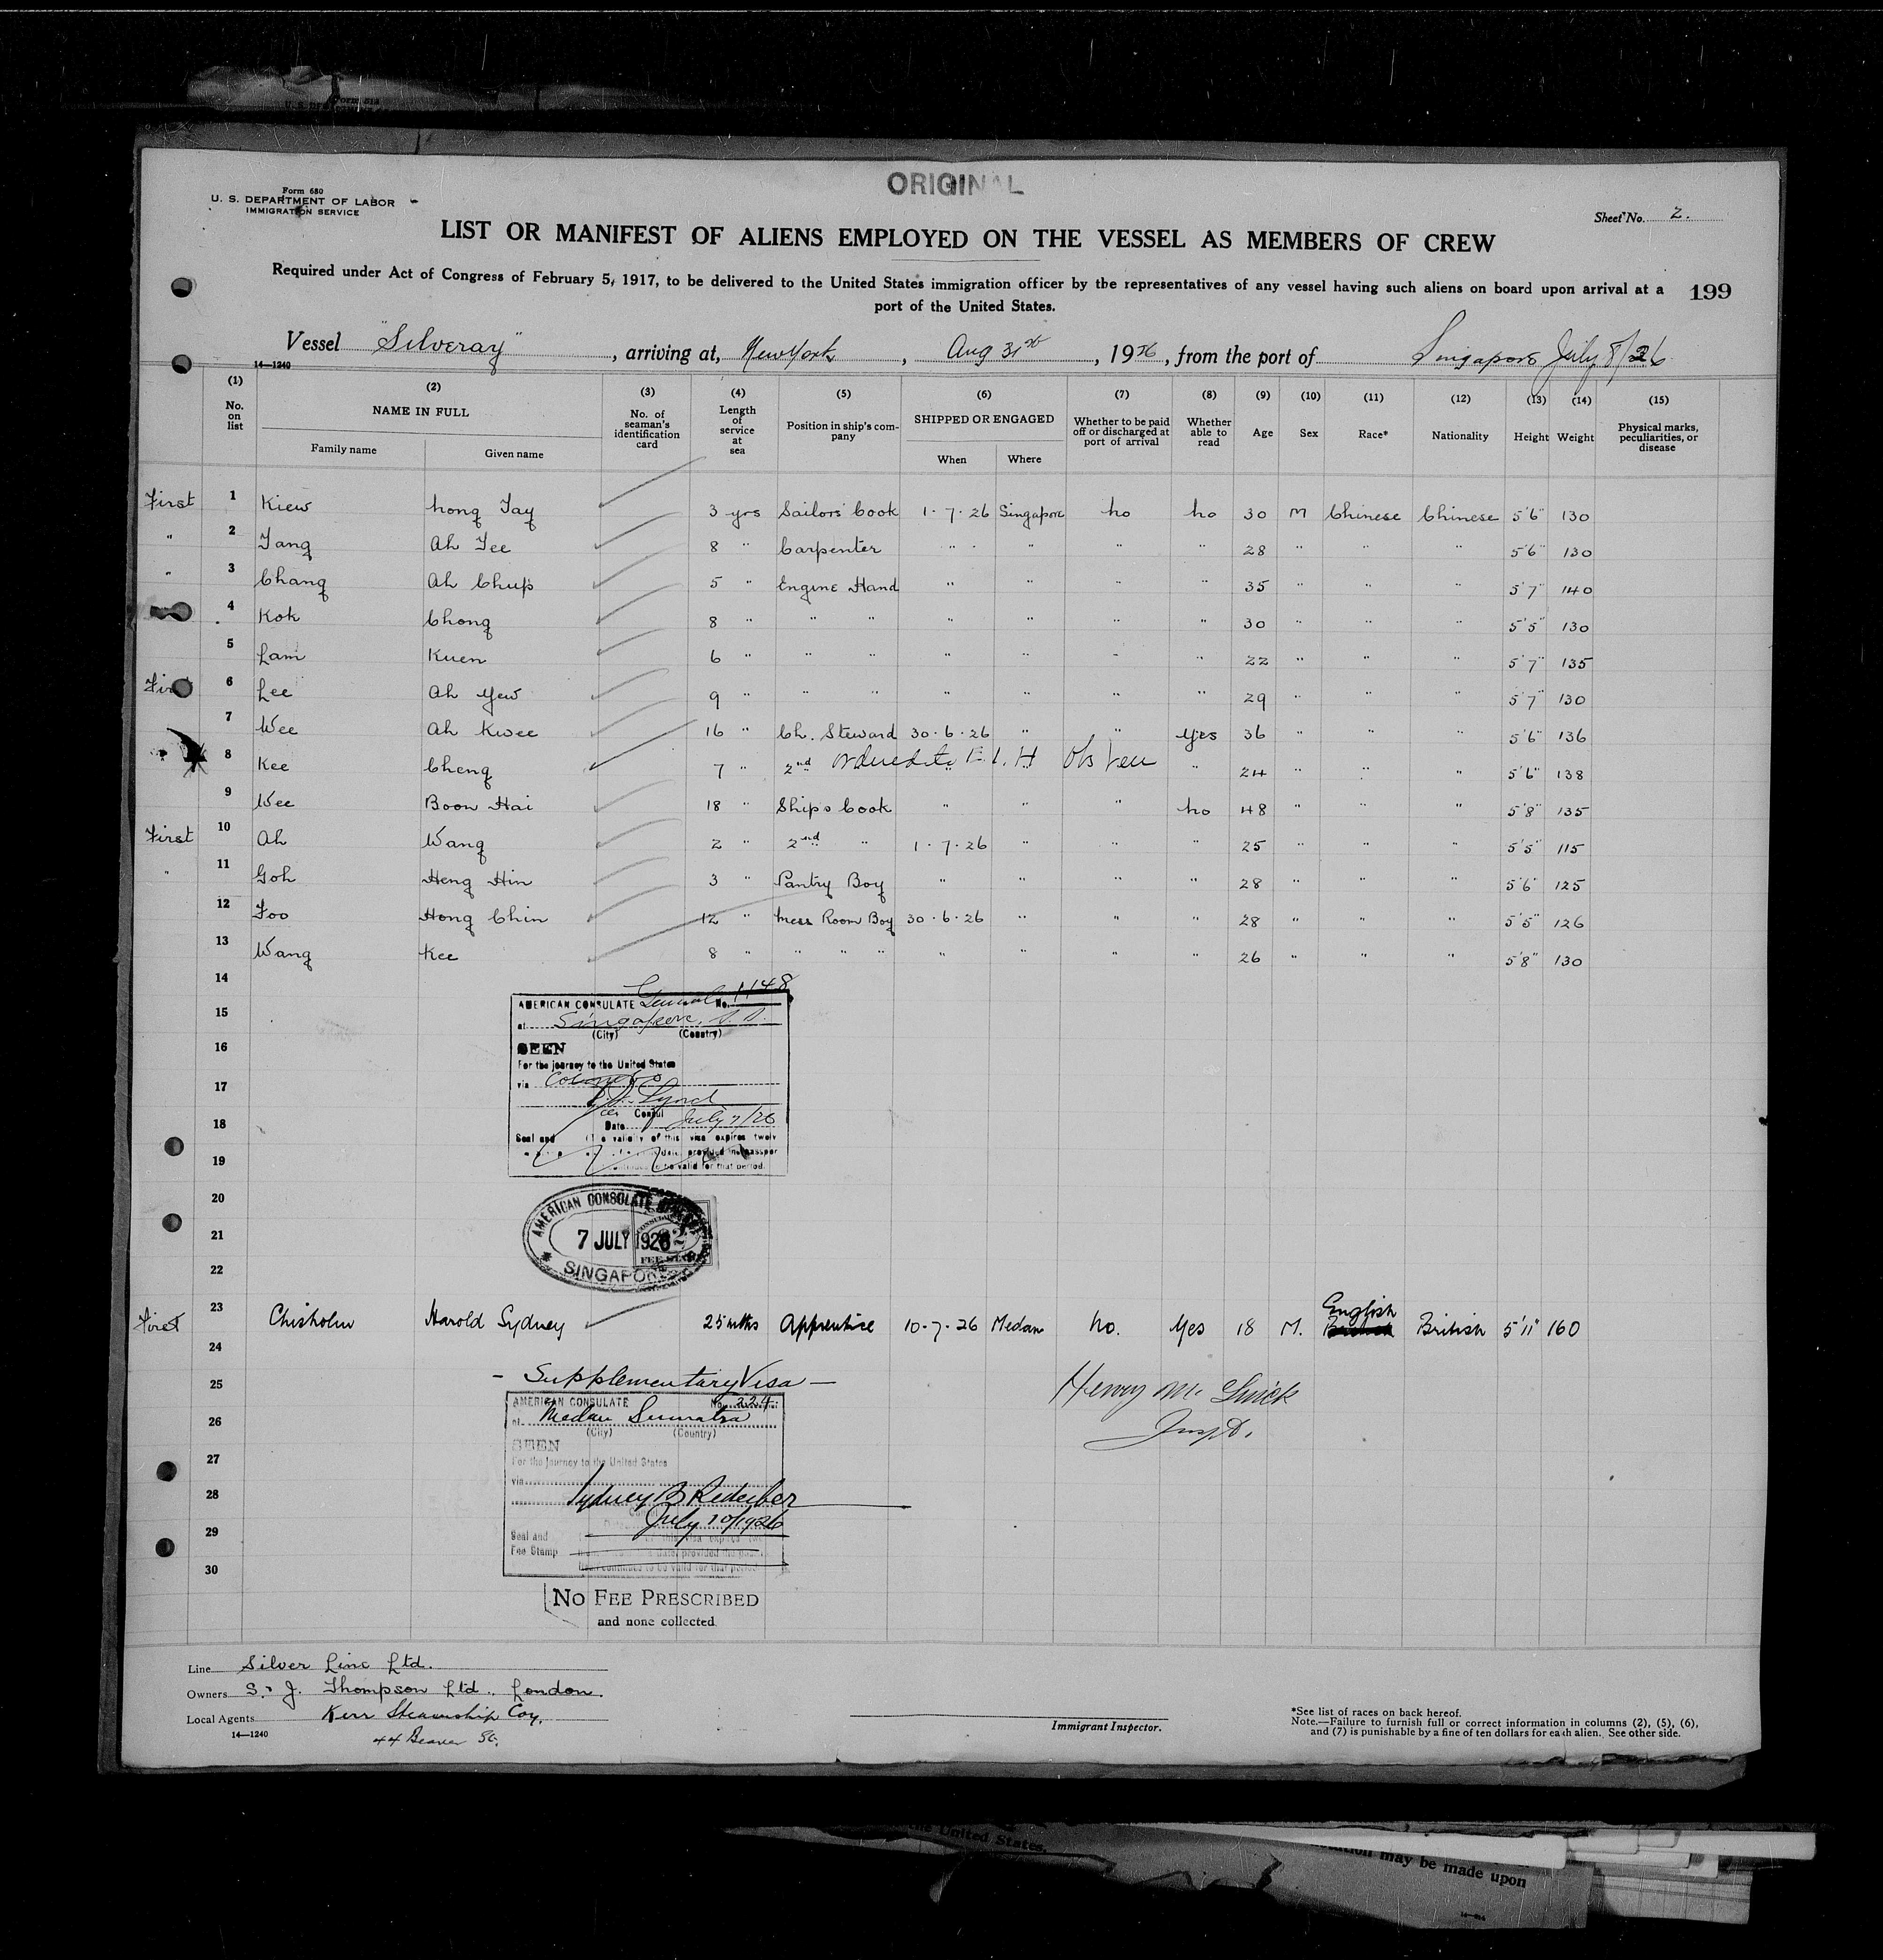 Form 680
U. S. DEPARTMENT OF LABOR
IMMIGRATION SERVICE
ORIGINAL
Sheet No. 2.
LIST OR MANIFEST OF ALIENS EMPLOYED ON THE VESSEL AS MEMBERS OF CREW
Required under Act of Congress of February 5, 1917, to be delivered to the United States immigration officer by the representatives of any vessel having such aliens on board upon arrival at a
port of the United States.
199
Vessel "Silveray", arriving at, New York, Aug 31st, 1926, from the port of Singapore July 8/26
14—1240
(1) (2) (3) (4) (5) (6) (7) (8) (9) (10) (11) (12) (13) (14) (15)
No. on list NAME IN FULL Family name Given name No. of seaman's identification card Length of service at sea Position in ship's company SHIPPED OR ENGAGED When Where Whether to be paid off or discharged at port of arrival Whether able to read Age Sex Race* Nationality Height Weight Physical marks, peculiarities, or disease
First 1 Kiew hong Tay 3 yrs Sailors Cook 1.7.26 Singapore no no 30 M Chinese Chinese 5'6" 130
" 2 Tang Ah Tee 8 " Carpenter " " " " 28 " " " 5'6" 130
" 3 Chang Ah Chup 5 " Engine Hand " " " " 35 " " " 5'7" 140
4 Kok Chong 8 " " " " " " " 30 " " " 5'5" 130
5 Lam Kuen 6 " " " " " " " 22 " " " 5'7" 135
First 6 Lee Ah Yew 9 " " " " " " " 29 " " " 5'7" 130
7 Wee Ah Kwee 16 " Ch. Steward 30.6.26 " " Yes 36 " " " 5'6" 136
8 Kee Cheng 7 " 2nd ordered to E.I.H " 24 " " " 5'6" 138
9 Wee Boon Hai 18 " Ships Cook " " " no 48 " " " 5'8" 135
First 10 Ah Wang 2 " 2nd " 1.7.26 " " " 25 " " " 5'5" 115
" 11 Goh Heng Hin 3 " Pantry Boy " " " " 28 " " " 5'6" 125
12 Foo Hong Chin 12 " Mess Room Boy 30.6.26 " " " 28 " " " 5'5" 126
13 Wang Kee 8 " " " " " " " " 26 " " " 5'8" 130
14
AMERICAN CONSULATE General No. 1148
15
at Singapore, S.S.
(City) (Country)
16
SEEN
For the journey to the United States
17
via Colombo
Consul
18
Date July 7/26
Seal and
19
20
AMERICAN CONSULATE GENERAL
21
7 JULY 1926
22
SINGAPORE
First 23 Chisholm Harold Sydney 25 mths Apprentice 10.7.26 Medan No. Yes 18 M. English British 5'11" 160
24
— Supplementary Visa —
25
Henry M.
AMERICAN CONSULATE No. 224
26
at Medan Sumatra
Inspt.
(City) (Country)
SEEN
27
For the journey to the United States
via
28
Sydney B Redecker
29
July 10/1926
Seal and
Fee Stamp
30
NO FEE PRESCRIBED
and none collected
Line Silver Line Ltd.
Owners S. & J. Thompson Ltd., London.
Local Agents Kerr Steamship Coy.
14—1240
44 Beaver St.
Immigrant Inspector.
*See list of races on back hereof.
Note.—Failure to furnish full or correct information in columns (2), (5), (6),
and (7) is punishable by a fine of ten dollars for each alien. See other side.
the United States.
may be made upon